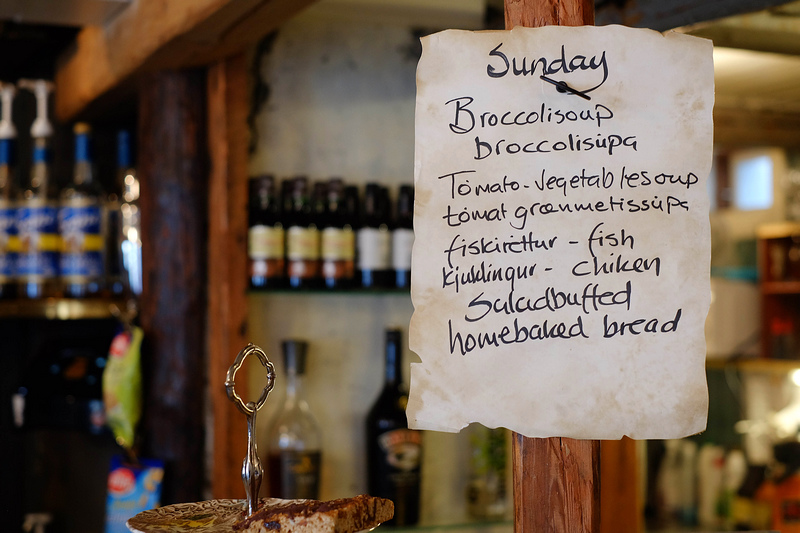 Sunday
Broccolisoup
broccolisúpa
Tómato-vegetablesoup
tómat grænmetissúpa
fiskiréttur - fish
kjúklingur - chiken
Saladbuffed
homebaked bread